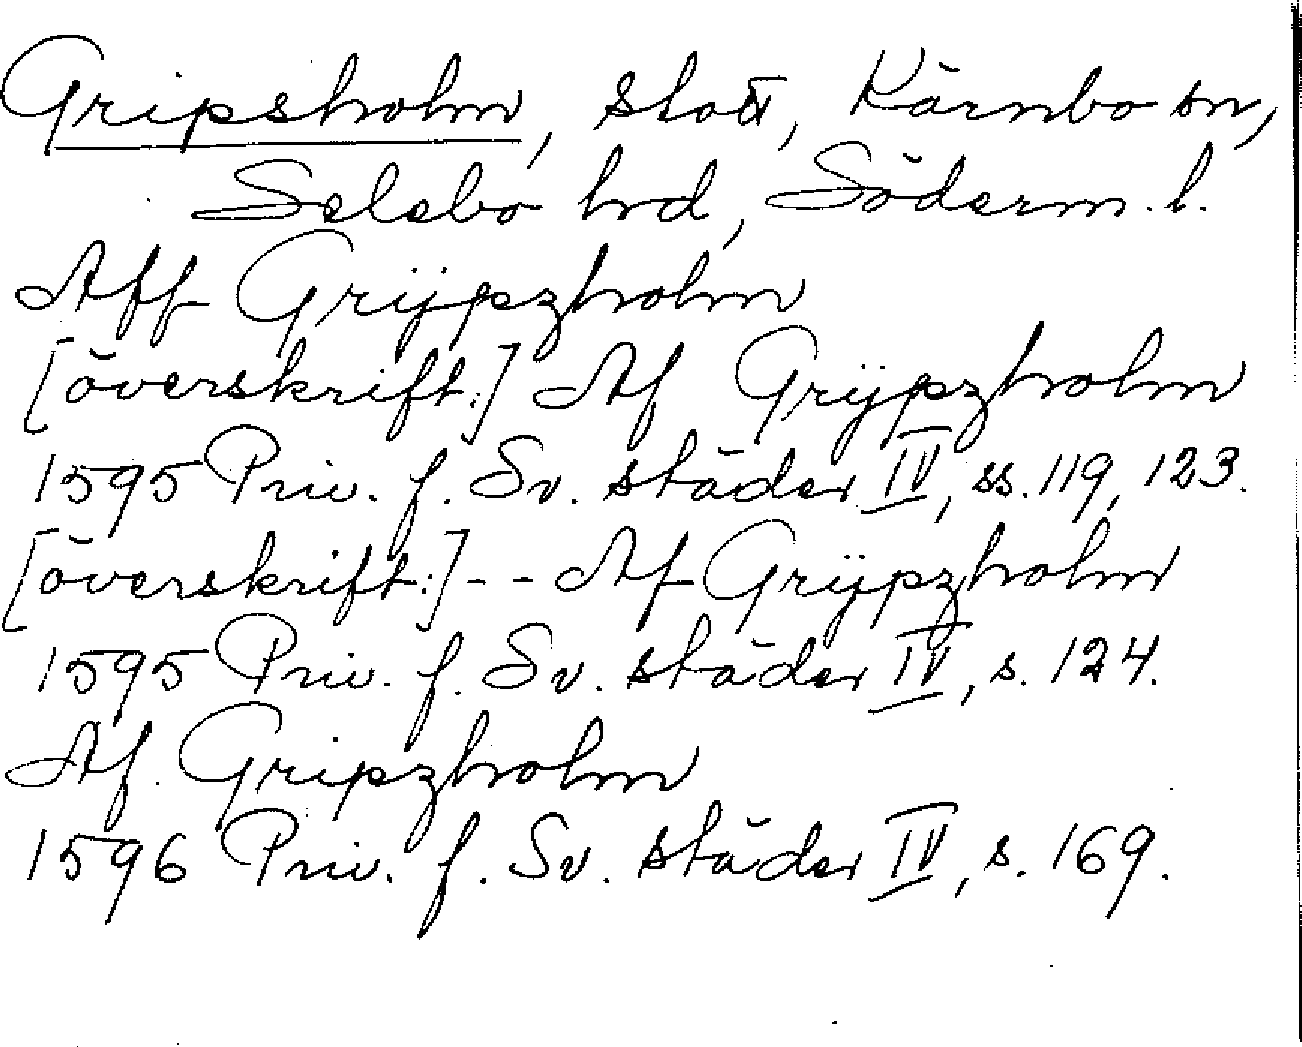 Gripsholm, slott, Kärnbo sn,
Selebo hrd, Söderm. l.
Aff Grijpzholm
[överskrift:] Af Grijpzholm
1595 Priv. f. Sv. städer IV, ss. 119, 123.
[överskrift:] - - Af Grijpzholm
1595 Priv. f. Sv. städer IV, s. 124.
Af Gripzholm
1596 Priv. f. Sv. städer IV, s. 169.